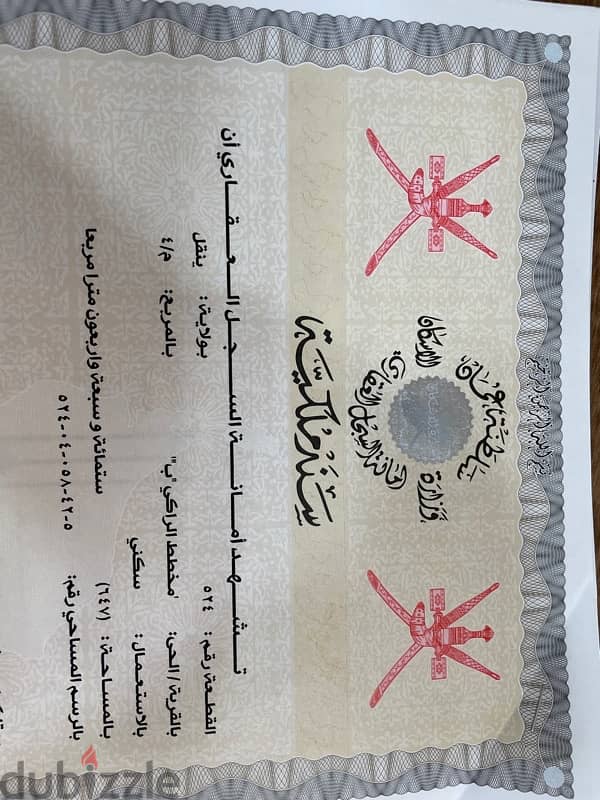 سلطنة عمان
وزارة
الإسكان
أمانة السجل العقاري
سند ملكية
تشهد أمانة السجل العقاري أن
القطعة رقم: ٥٢٤ بولاية: ينقل
بالقرية / الحي: "مخطط الراكي "ب بالمربع: م/٤
بالاستعمال: سكني
بالمساحة: (٦٤٧) ستمائة و سبعة واربعون مترا مربعا
بالرسم المساحي رقم: ٥٢٤-٠٤-٠٥٨-٤٢-٥
dubizzle